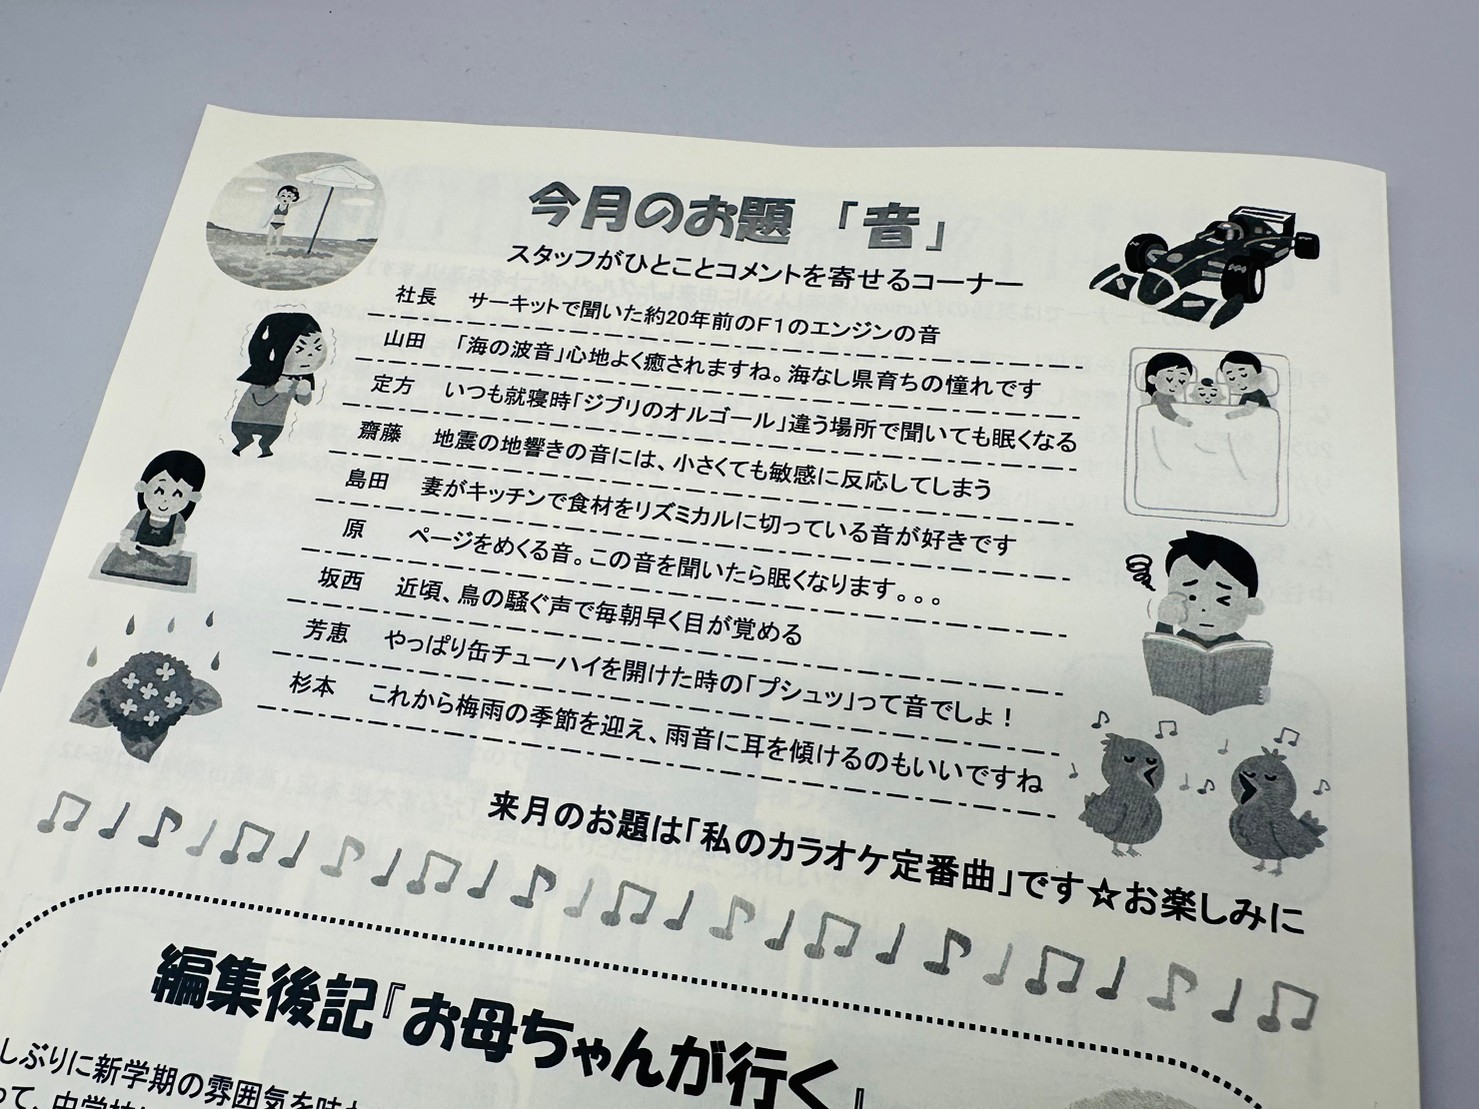 今月のお題 「音」
スタッフがひとことコメントを寄せるコーナー
社長 サーキットで聞いた約20年前のF1のエンジンの音
山田 「海の波音」心地よく癒されますね。海なし県育ちの憧れです
定方 いつも就寝時「ジブリのオルゴール」違う場所で聞いても眠くなる
齋藤 地震の地響きの音には、小さくても敏感に反応してしまう
島田 妻がキッチンで食材をリズミカルに切っている音が好きです
原 ページをめくる音。この音を聞いたら眠くなります。。。
坂西 近頃、鳥の騒ぐ声で毎朝早く目が覚める
芳恵 やっぱり缶チューハイを開けた時の「プシュッ」って音でしょ！
杉本 これから梅雨の季節を迎え、雨音に耳を傾けるのもいいですね
来月のお題は「私のカラオケ定番曲」です☆お楽しみに
編集後記『お母ちゃんが行く』
しぶりに新学期の雰囲気を味わ
って、中学校